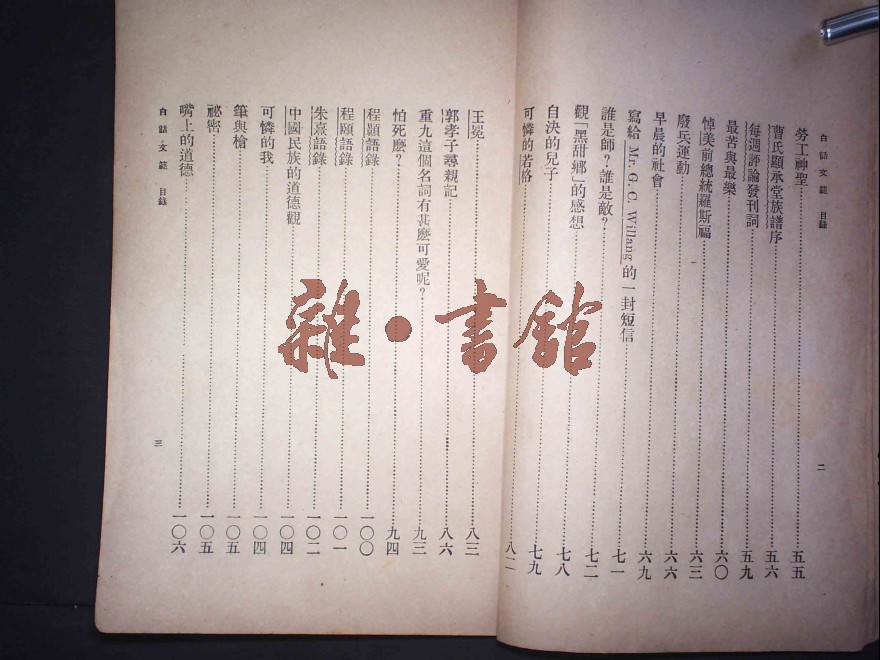 白話文範 目錄
二
勞工神聖……五五
曹氏顯承堂族譜序……五六
每週評論發刊詞……五九
最苦與最樂……六〇
悼美前總統羅斯福……六三
廢兵運動……六六
早晨的社會……六九
寫給 Mr. G. C. Willang 的一封短信……七一
誰是師？誰是敵？……七二
觀「黑甜鄉」的感想……七八
自決的兒子……七九
可憐的若格……八二
王冕……八三
郭孝子尋親記……八六
重九這個名詞有甚麼可愛呢？……九三
怕死麼？……九四
程顥語錄……一〇〇
程頤語錄……一〇一
朱熹語錄……一〇二
中國民族的道德觀……一〇四
可憐的我……一〇四
筆與槍……一〇五
祕密……一〇五
嘴上的道德……一〇六
白話文範 目錄
三
雜·書館